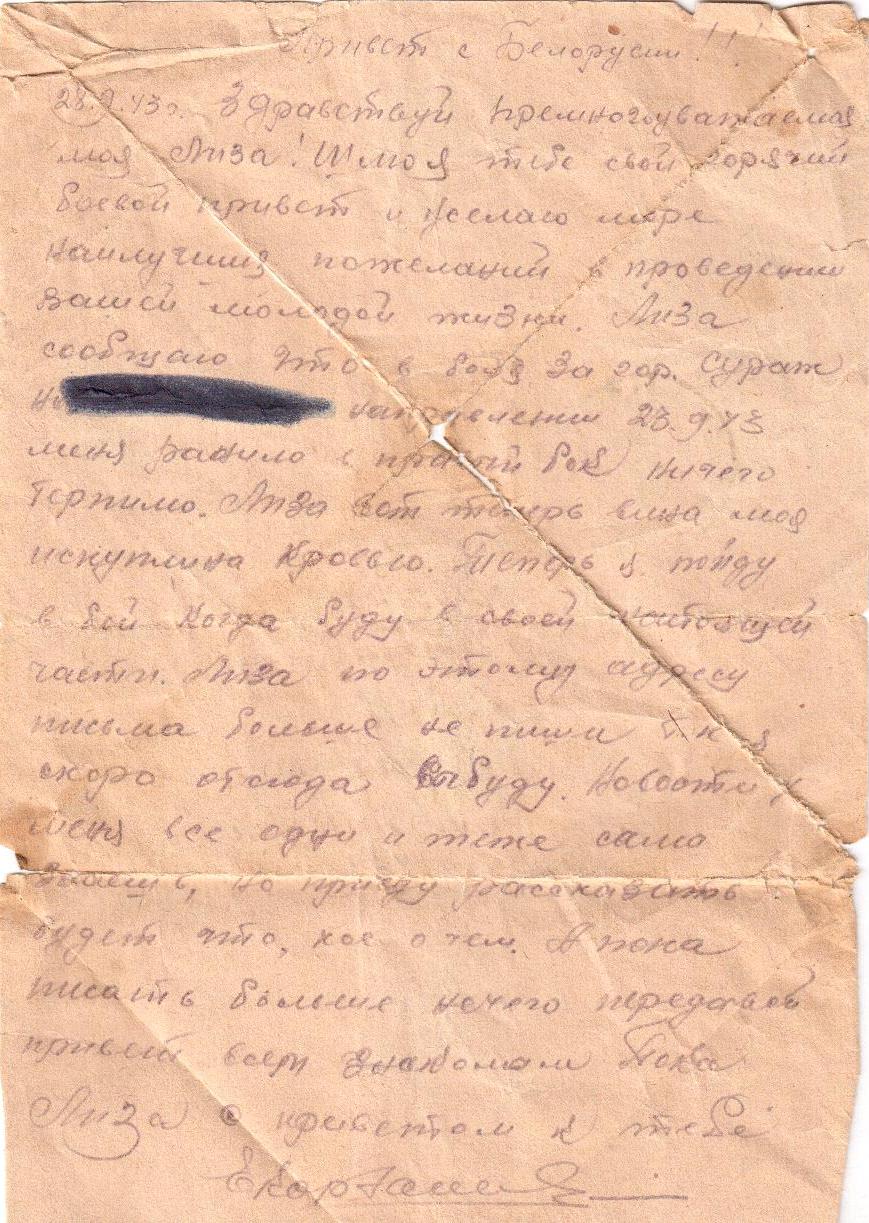 Привет с Белорусии!!!
28.9.43г. Здравствуй премногоуважаемая
моя Лиза! Шлю я тебе свой горячий
боевой привет и желаю море
наилучших пожеланий в проведении
вашей молодой жизни. Лиза
сообщаю что в боях за гор. Сураж
на направлении 23.9.43
меня ранило в правый бок ничего
терпимо. Лиза вот теперь вина моя
искуплина Кровью. Теперь я пойду
в бой когда буду в своей настоящей
части. Лиза по этому адресу
письма больше не пиши т.к я
скоро отсюда выбуду. Новости у
меня все одни и теже сама
знаешь, но приеду рассказать
будет что, кое о чем. А пока
писать больше нечего передавай
привет всем знакомым Пока
Лиза с приветом к тебе